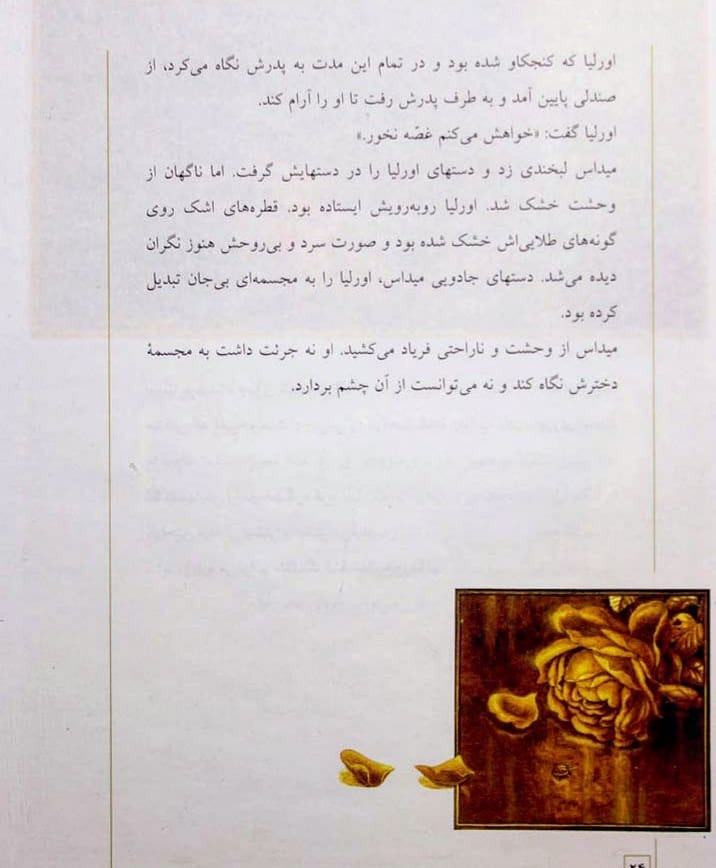 اورلیا که کنجکاو شده بود و در تمام این مدت به پدرش نگاه می‌کرد، از
صندلی پایین آمد و به طرف پدرش رفت تا او را آرام کند.
اورلیا گفت: «خواهش می‌کنم غصّه نخور.»
میداس لبخندی زد و دستهای اورلیا را در دستهایش گرفت. اما ناگهان از
وحشت خشک شد. اورلیا روبه‌رویش ایستاده بود. قطره‌های اشک روی
گونه‌های طلایی‌اش خشک شده بود و صورت سرد و بی‌روحش هنوز نگران
دیده می‌شد. دستهای جادویی میداس، اورلیا را به مجسمه‌ای بی‌جان تبدیل
کرده بود.
میداس از وحشت و ناراحتی فریاد می‌کشید. او نه جرئت داشت به مجسمهٔ
دخترش نگاه کند و نه می‌توانست از آن چشم بردارد.
۲۴